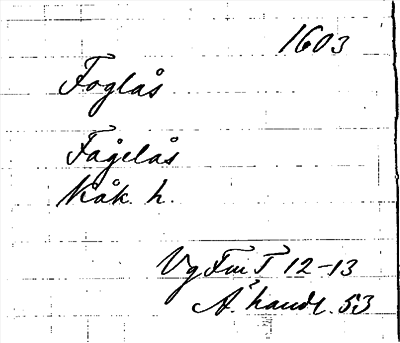 1603
Foglås
Fågelås
Kåk. h.
Vg Fm T 12-13
Ä. handl. 53